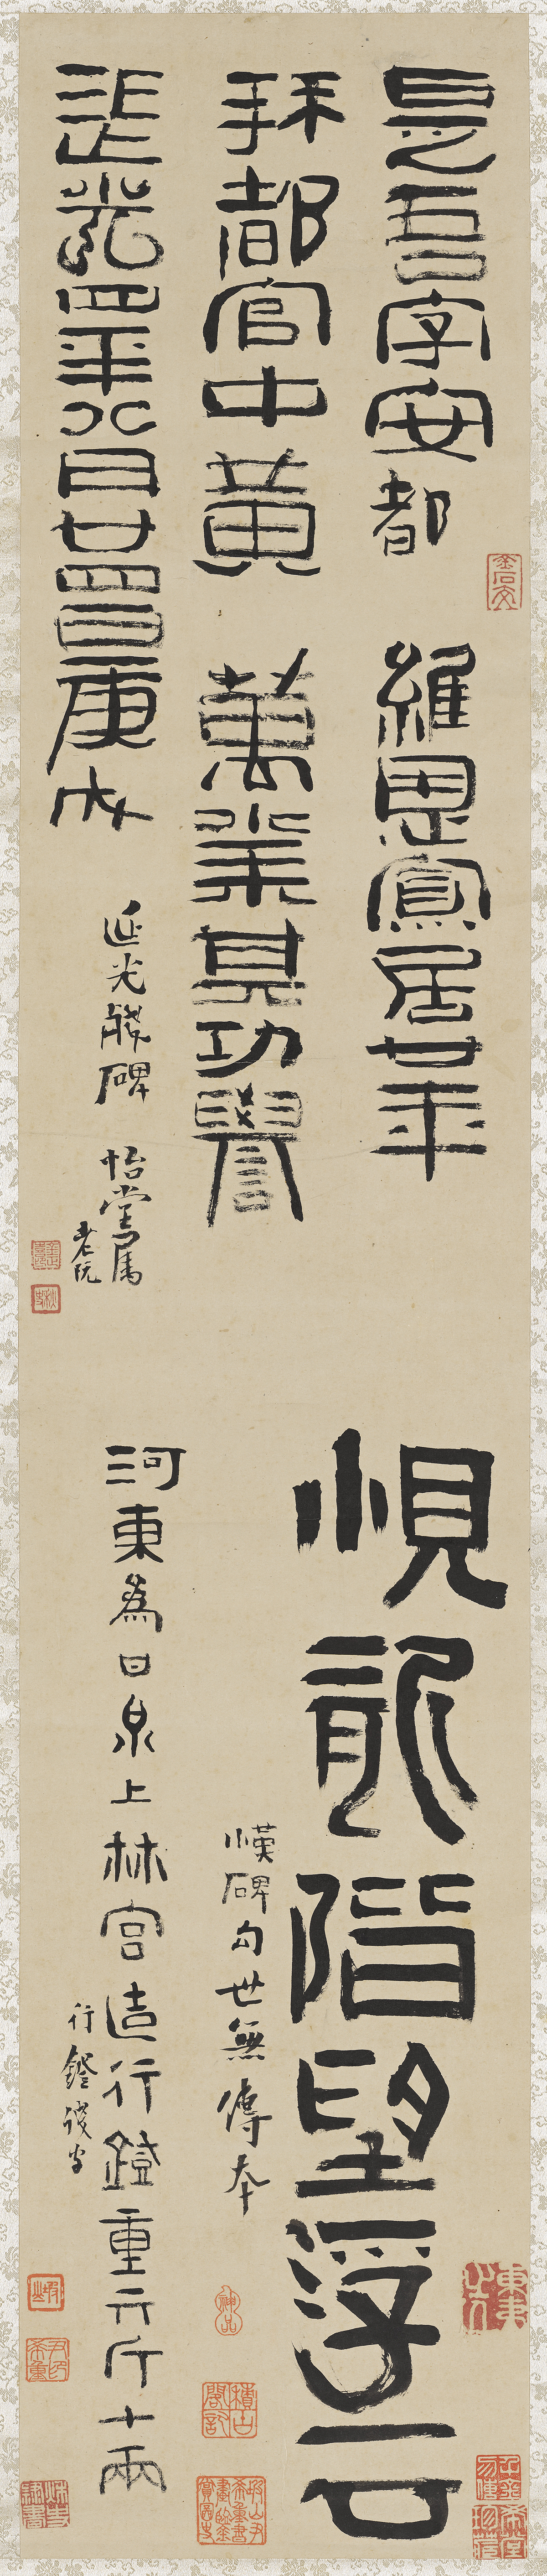 是吾字安都 維恩寡居廿年
拜都官中黃 萬業其功譽
延光四年八月廿四日庚戌
延光殘碑 怡堂屬
老阮
金石交
悓龍階望浮云
漢碑句世無傳本
河東為甘泉上林宮造行鐙重六斤十兩
行鐙殘字
神品